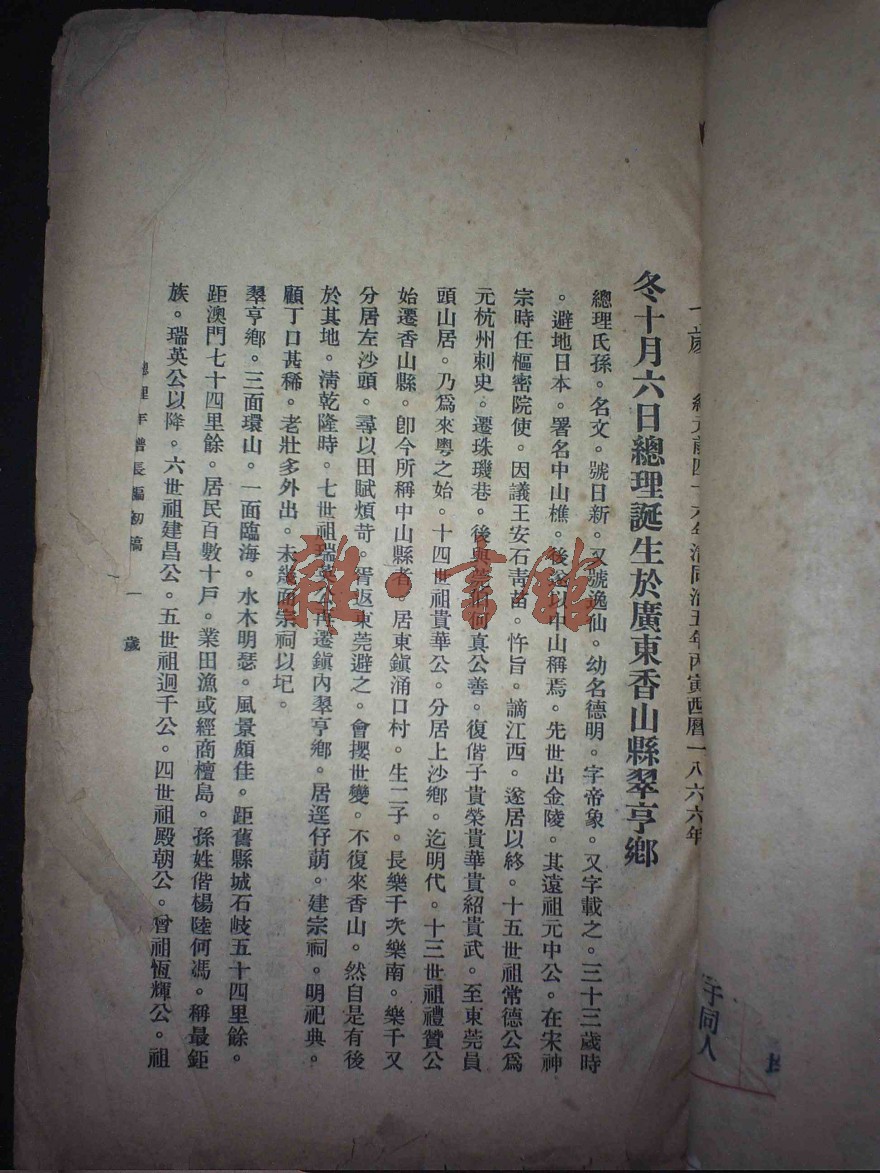 一歲 紀元前四十六年清同治五年丙寅西曆一八六六年
冬十月六日總理誕生於廣東香山縣翠亨鄉
總理氏孫。名文。號日新。又號逸仙。幼名德明。字帝象。又字載之。三十三歲時
。避地日本。署名中山樵。後遂以中山稱焉。先世出金陵。其遠祖元中公。在宋神
宗時任樞密院使。因議王安石靑苗。忤旨。謫江西。遂居以終。十五世祖常德公爲
元杭州刺史。遷珠璣巷。後與莞伯何真公善。復偕子貴榮貴華貴紹貴武。至東莞員
頭山居。乃爲來粵之始。十四世祖貴華公。分居上沙鄉。迄明代。十三世祖禮贊公
始遷香山縣。卽今所稱中山縣者。居東鎭涌口村。生二子。長樂千次樂南。樂千又
分居左沙頭。尋以田賦煩苛。胥返東莞避之。會攖世變。不復來香山。然自是有後
於其地。清乾隆時。七世祖瑞英公再遷鎭內翠亨鄉。居逕仔蓢。建宗祠。明祀典。
顧丁口甚稀。老壯多外出。未幾而宗祠以圮。
翠亨鄉。三面環山。一面臨海。水木明瑟。風景頗佳。距舊縣城石岐五十四里餘。
距澳門七十四里餘。居民百數十戶。業田漁或經商檀島。孫姓偕楊陸何馮。稱最鉅
族。瑞英公以降。六世祖建昌公。五世祖迥千公。四世祖殿朝公。曾祖恆輝公。祖
總理年譜長編初稿 一歲
雜·書館
同人